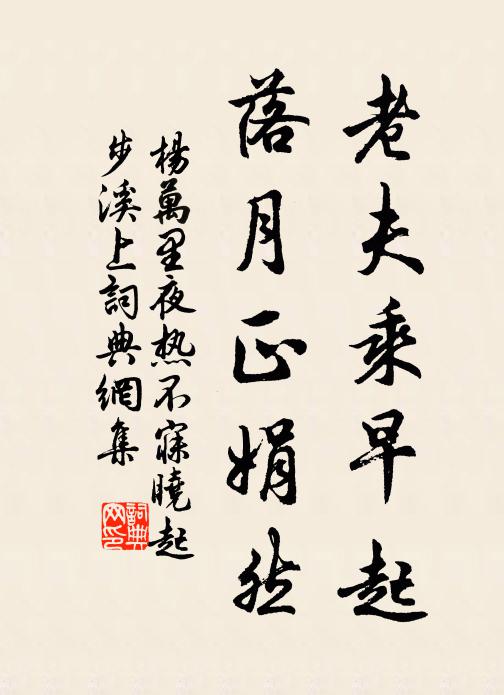 老夫乘早起
落月正娟然
楊萬里夜热不寐曉起
步溪上詞典網集
詞典
网印